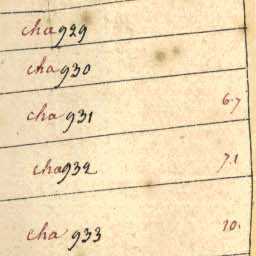 cha 929
cha 930
cha 931 6.7
cha 932 7.1
cha 933 10.